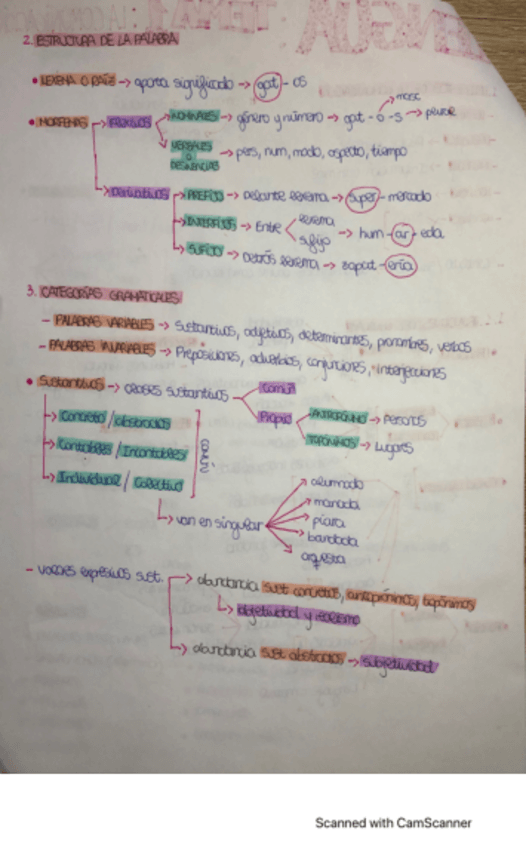 LENGUA: TEMA 1: LA COMUNICACIÓN
2. ESTRUCTURA DE LA PALABRA
• LEXEMA O RAÍZ → aporta significado → gat - os
• MORFEMAS
FLEXIVOS
NOMINALES → género y número → gat - o - s → plural
masc
VERBALES O DESINENCIAS → pers, num, modo, aspecto, tiempo
Derivativos
PREFIJO → Delante lexema → super - mercado
INTERFIJOS → Entre lexema sufijo → hum - ar - eda
SUFIJO → Detrás lexema → zapat - ería
3. CATEGORÍAS GRAMATICALES
- PALABRAS VARIABLES → Sustantivos, adjetivos, determinantes, pronombres, verbos
- PALABRAS INVARIABLES → Preposiciones, adverbios, conjunciones, interjecciones
• Sustantivos → CLASES sustantivos
Común
Propio
ANTROPÓNIMO → Personas
TOPÓNIMOS → Lugares
→ Concreto / abstractos
→ Contables / Incontables
→ Individual / Colectivo
COMUN
→ van en singular
alumnado
manada
piara
bandada
orquesta
- valores expresivos sust.
abundancia sust concretos, antropónimos, topónimos
→ objetividad y realismo
→ abundancia sust abstractos → subjetividad
Scanned with CamScanner